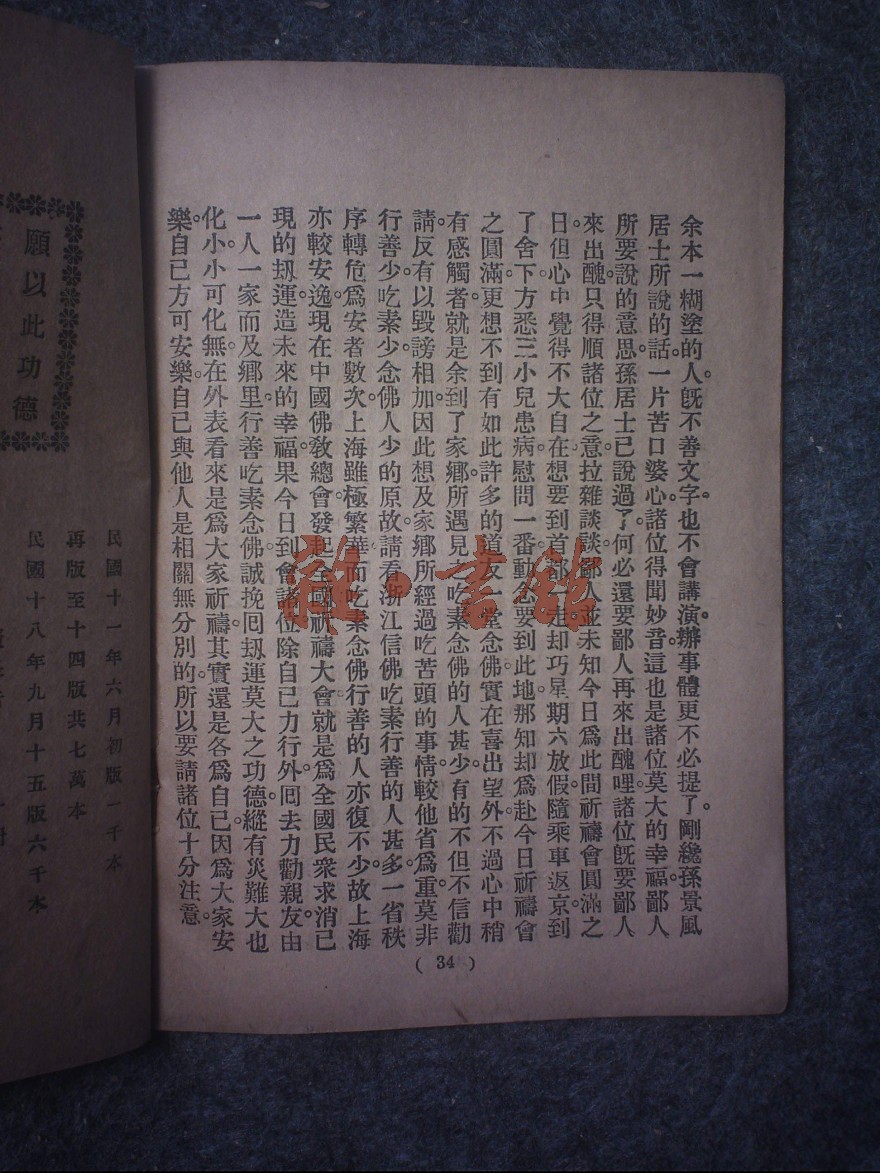 余本一糊塗的人。旣不善文字。也不會講演。辦事體更不必提了。剛纔孫景風
居士所說的話一片苦口婆心諸位得聞妙音。這也是諸位莫大的幸福。鄙人
所要說的意思孫居士已說過了。何必還要鄙人再來出醜哩諸位旣要鄙人
來出醜。只得順諸位之意。拉雜談談。鄙人並未知今日爲此間祈禱會圓滿之
日。但心中覺得不大自在想要到首都一走却巧星期六放假隨乘車返京到
了舍下方悉三小兒患病慰問一番。動念要到此地那知却爲赴今日祈禱會
之圓滿。更想不到有如此許多的道友一堂念佛實在喜出望外。不過心中稍
有感觸者。就是余到了家鄉所遇見之吃素念佛的人甚少。有的不但不信勸
請。反有以毀謗相加。因此想及家鄉所經過吃苦頭的事情。較他省爲重莫非
行善少。吃素少念佛人少的原故。請看浙江信佛吃素行善的人甚多。一省秩
序轉危爲安者數次。上海雖極繁華而吃素念佛行善的人亦復不少。故上海
亦較安逸。現在中國佛敎總會發起全國祈禱大會就是爲全國民衆求消已
現的刼運造未來的幸福。果今日到會諸位除自已力行外囘去力勸親友由
一人一家而及鄉里。行善吃素念佛。誠挽囘刼運莫大之功德。縱有災難大也
化小。小可化無。在外表看來是爲大家祈禱。其實還是各爲自已。因爲大家安
樂。自已方可安樂。自已與他人是相關無分別的。所以要請諸位十分注意。
( 34 )
願以此功德
民國十一年六月初版一千本
再版至十四版共七萬本
民國十八年九月十五版六千本